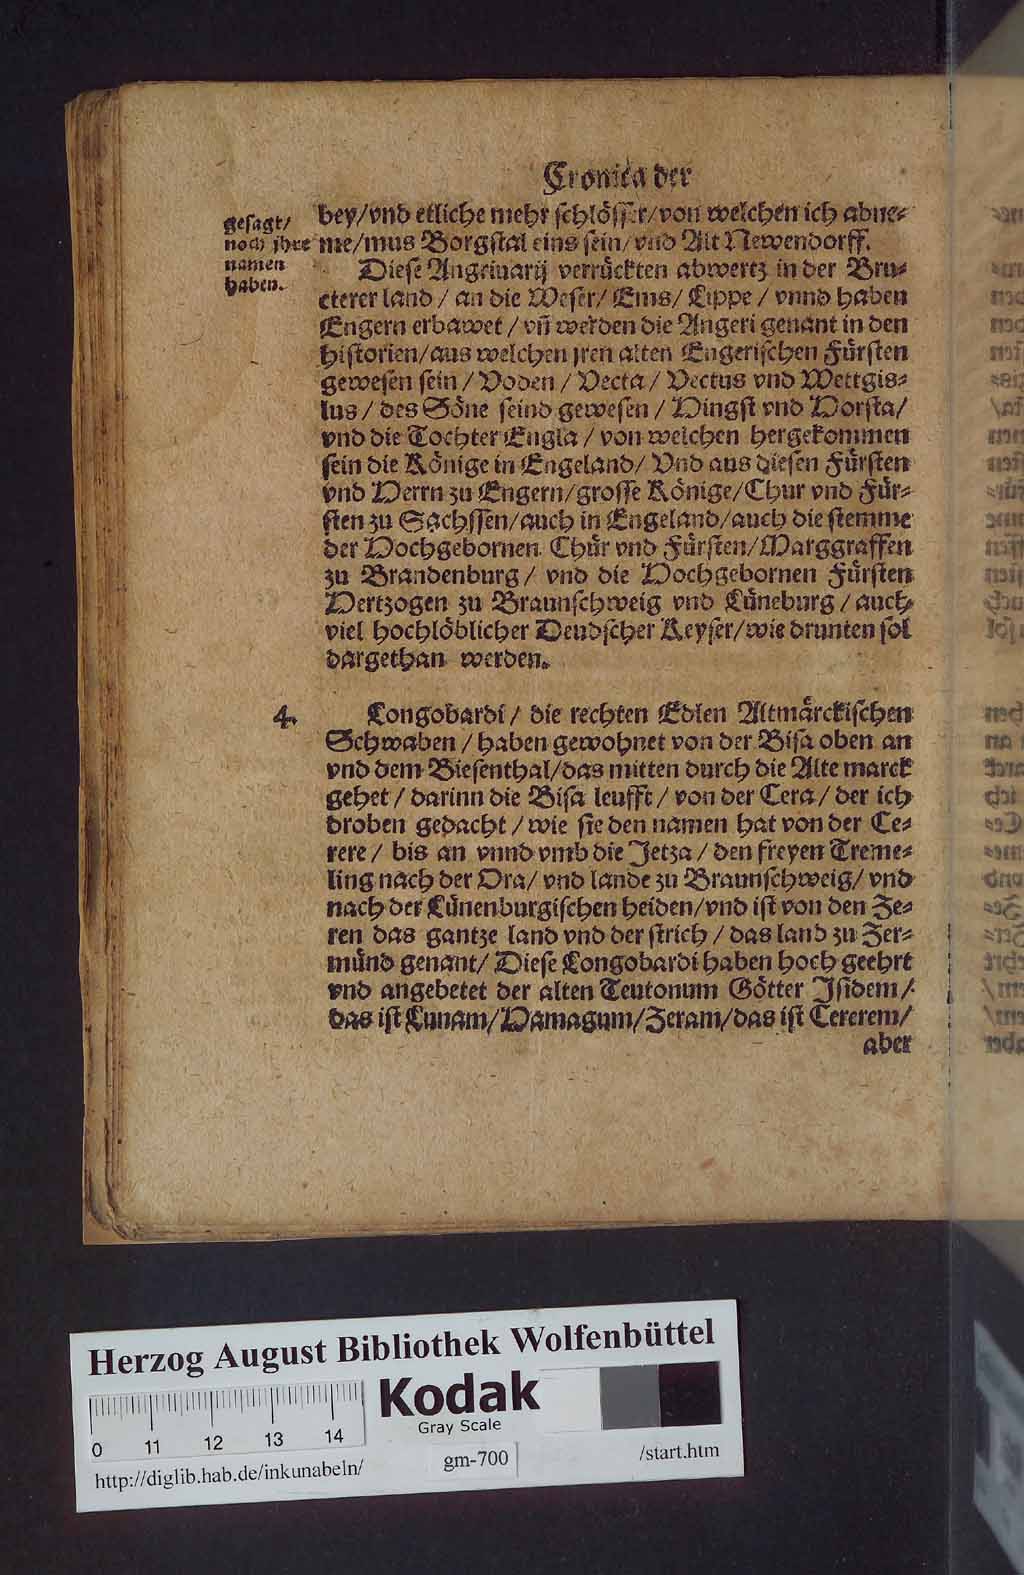 Cronica der
gesagt/
noch ihre
namen
haben.
bey/vnd etliche mehr schlösser/von welchen ich abne⸗
me/mus Borgstal eins sein/vnd Alt Newendorff.
Diese Angrivarij verrückten abwertz in der Bru⸗
cterer land / an die Weser/ Ems/ Lippe / vnnd haben
Engern erbawet / vñ werden die Angeri genant in den
historien/aus welchen jren alten Engerischen Fürsten
gewesen sein / Voden / Vecta / Vectus vnd Wettgis⸗
lus / des Söne seind gewesen / Hingst vnd Horsta/
vnd die Tochter Engla / von welchen hergekommen
sein die Könige in Engeland/ Vnd aus diesen Fürsten
vnd Herrn zu Engern/grosse Könige/Chur vnd Für⸗
sten zu Sachssen/auch in Engeland/auch die stemme
der Hochgebornen Chür vnd Fürsten/Marggraffen
zu Brandenburg / vnd die Hochgebornen Fürsten
Hertzogen zu Braunschweig vnd Lüneburg / auch
viel hochlöblicher Deudscher Keyser/wie drunten sol
dargethan werden.
4.
Longobardi / die rechten Edlen Altmärckischen
Schwaben / haben gewohnet von der Bisa oben an
vnd dem Biesenthal/das mitten durch die Alte marck
gehet / darinn die Bisa leufft / von der Cera / der ich
droben gedacht / wie sie den namen hat von der Ce⸗
rere / bis an vnnd vmb die Jetza / den freyen Treme⸗
ling nach der Ora/ vnd lande zu Braunschweig/ vnd
nach der Lünenburgischen heiden/vnd ist von den Ze⸗
ren das gantze land vnd der strich / das land zu Zer⸗
münd genant/ Diese Longobardi haben hoch geehrt
vnd angebetet der alten Teutonum Götter Isidem/
das ist Lunam/Hamagum/Zeram/das ist Cererem/
aber
Herzog August Bibliothek Wolfenbüttel
Kodak
Gray Scale
0 11 12 13 14
http://diglib.hab.de/inkunabeln/
gm-700
/start.htm